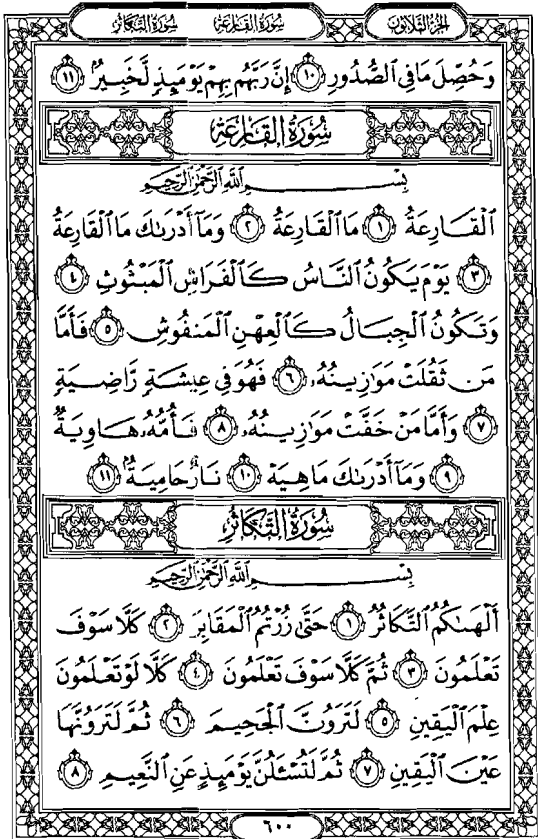 الجزء الثلاثون سورة القارعة سورة التكاثر
وَحُصِّلَ مَا فِي ٱلصُّدُورِ ١٠ إِنَّ رَبَّهُم بِهِمْ يَوْمَئِذٍ لَّخَبِيرٌ ١١
سُورَةُ القَارِعَةِ
بِسْمِ ٱللَّهِ ٱلرَّحْمَٰنِ ٱلرَّحِيمِ
ٱلْقَارِعَةُ ١ مَا ٱلْقَارِعَةُ ٢ وَمَآ أَدْرَىٰكَ مَا ٱلْقَارِعَةُ
٣ يَوْمَ يَكُونُ ٱلنَّاسُ كَٱلْفَرَاشِ ٱلْمَبْثُوثِ ٤
وَتَكُونُ ٱلْجِبَالُ كَٱلْعِهْنِ ٱلْمَنفُوشِ ٥ فَأَمَّا
مَن ثَقُلَتْ مَوَٰزِينُهُۥ ٦ فَهُوَ فِي عِيشَةٍ رَّاضِيَةٍ
٧ وَأَمَّا مَنْ خَفَّتْ مَوَٰزِينُهُۥ ٨ فَأُمُّهُۥ هَاوِيَةٌ
٩ وَمَآ أَدْرَىٰكَ مَا هِيَهْ ١٠ نَارٌ حَامِيَةٌ ١١
سُورَةُ التَّكَاثُرِ
بِسْمِ ٱللَّهِ ٱلرَّحْمَٰنِ ٱلرَّحِيمِ
أَلْهَىٰكُمُ ٱلتَّكَاثُرُ ١ حَتَّىٰ زُرْتُمُ ٱلْمَقَابِرَ ٢ كَلَّا سَوْفَ
تَعْلَمُونَ ٣ ثُمَّ كَلَّا سَوْفَ تَعْلَمُونَ ٤ كَلَّا لَوْ تَعْلَمُونَ
عِلْمَ ٱلْيَقِينِ ٥ لَتَرَوُنَّ ٱلْجَحِيمَ ٦ ثُمَّ لَتَرَوُنَّهَا
عَيْنَ ٱلْيَقِينِ ٧ ثُمَّ لَتُسْـَٔلُنَّ يَوْمَئِذٍ عَنِ ٱلنَّعِيمِ ٨
٦٠٠